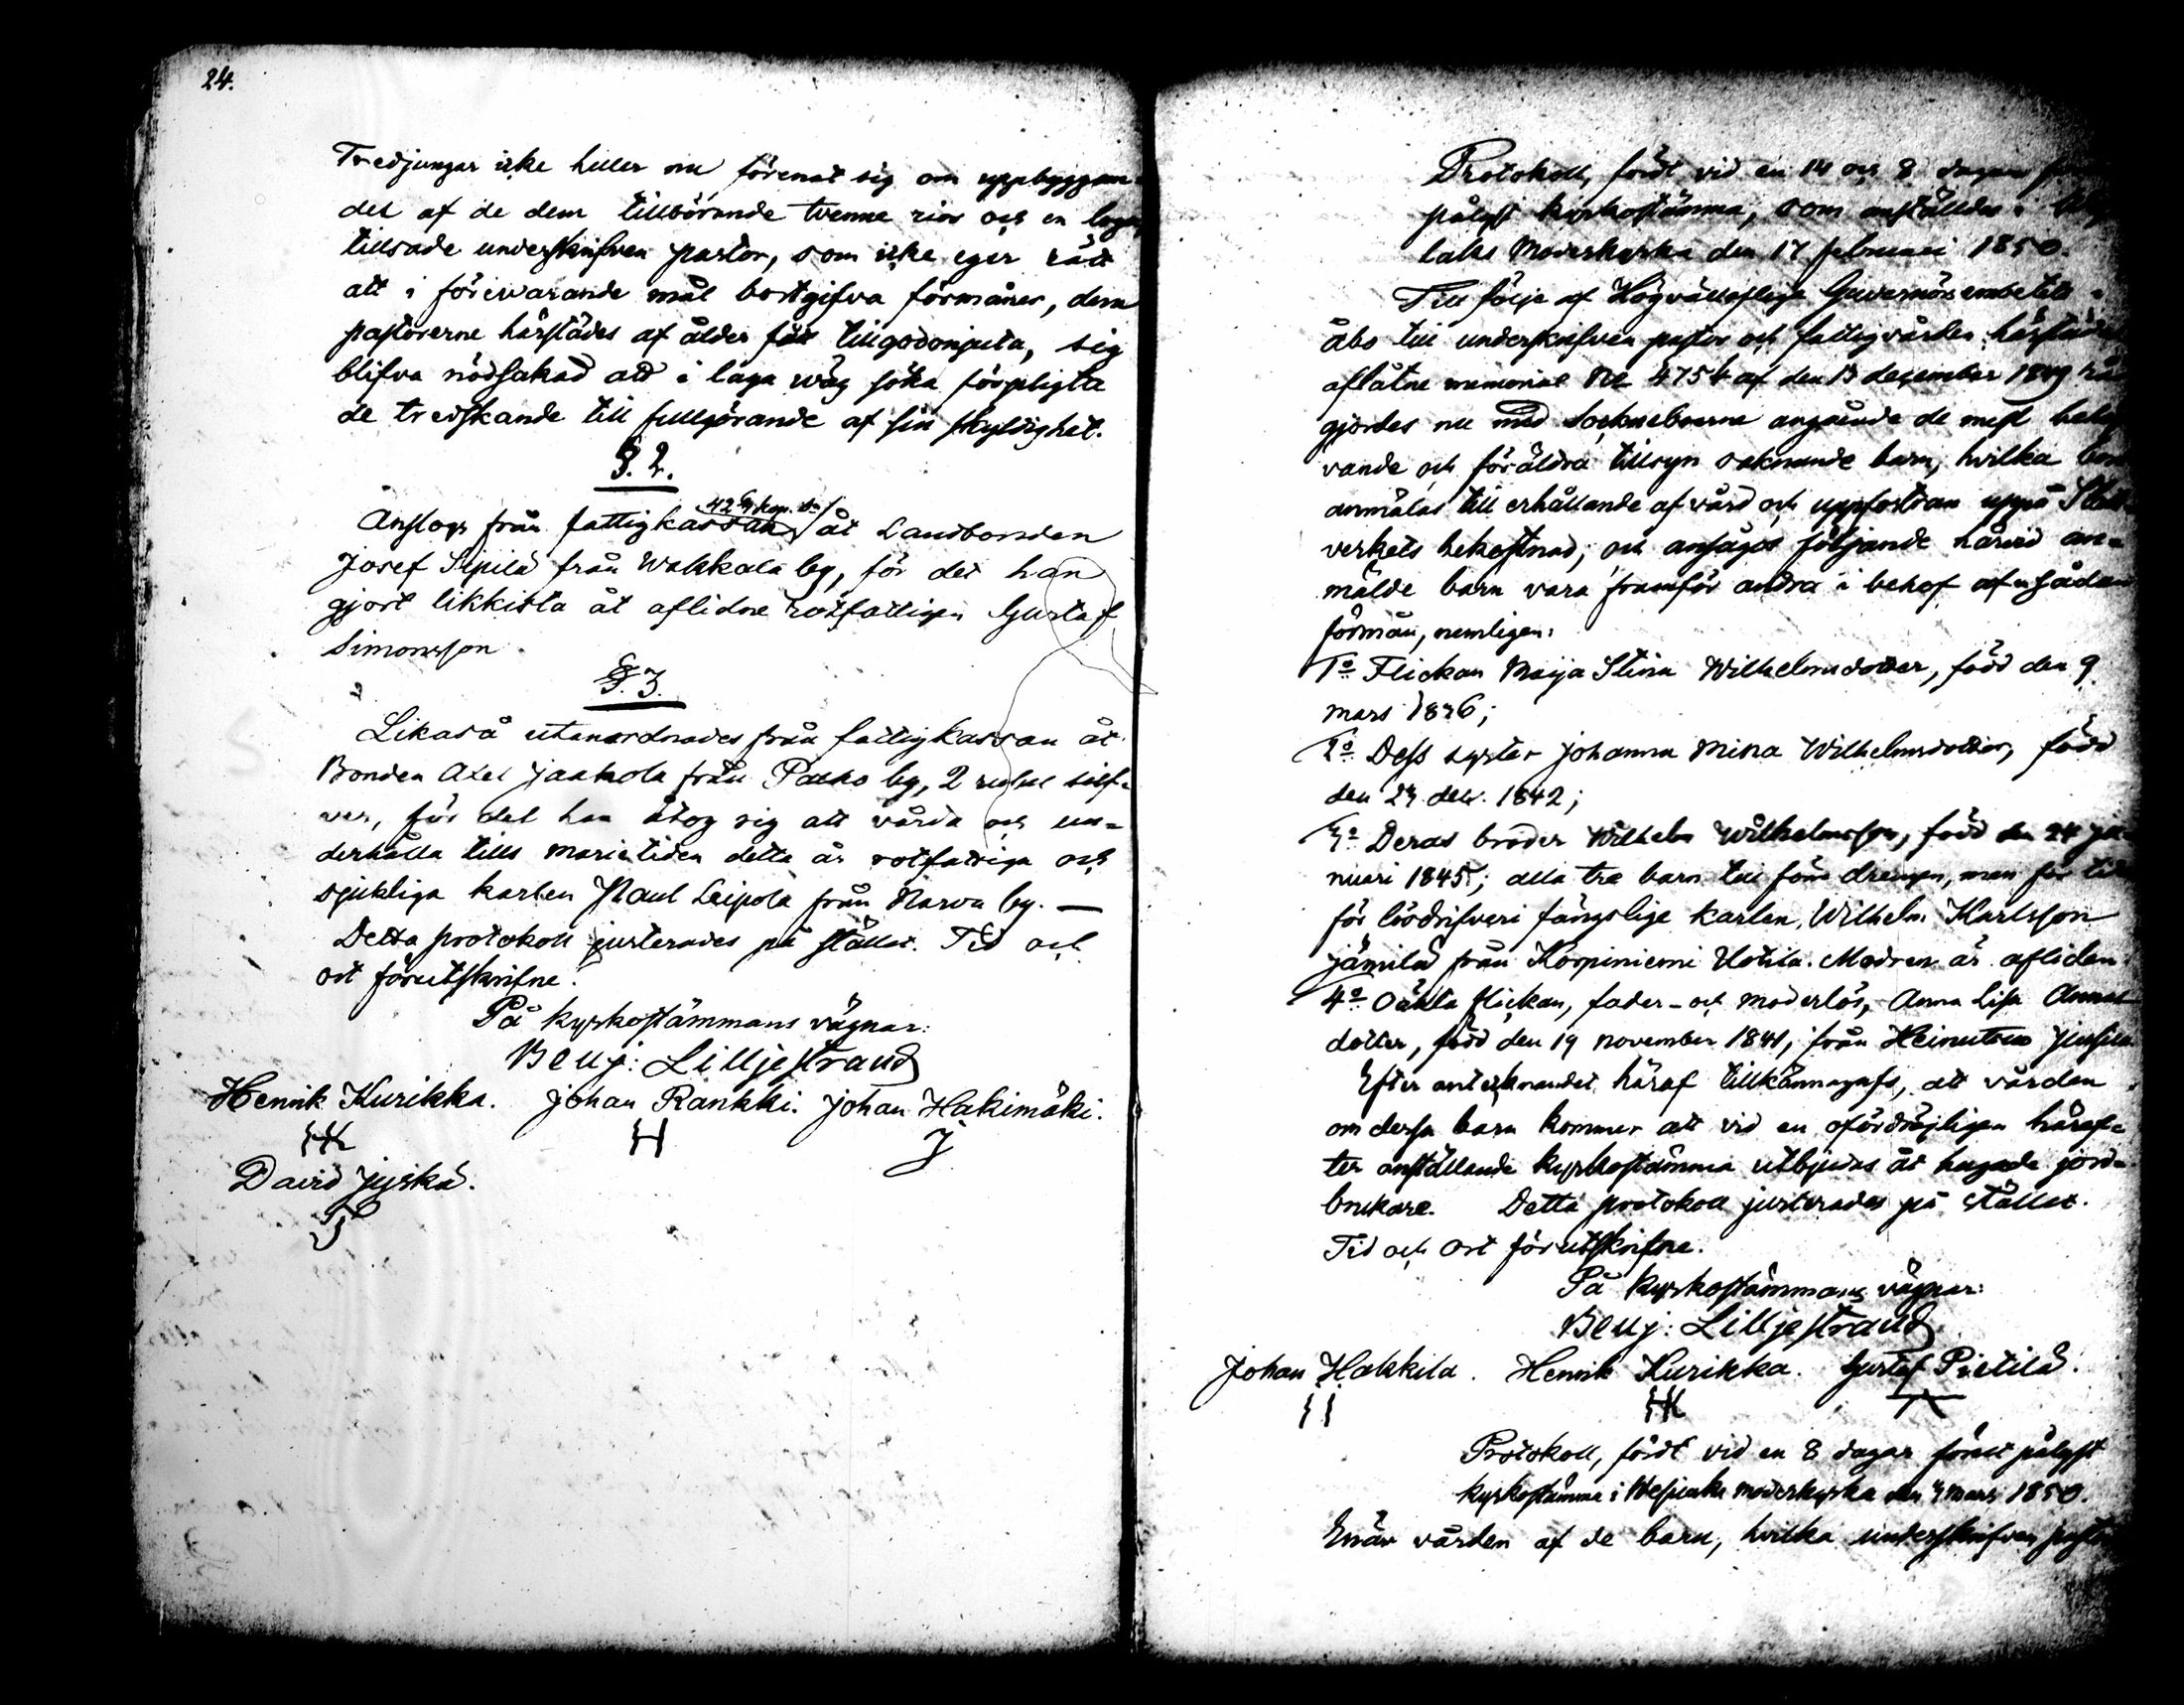 24.
Tredjungar icke heller nu förenat sig om uppbyggan-
det af de dem tillhörande tvenne rior och en loge,
tillsade underskrifven pastor, som icke eger rätt
att i förevarande mål bortgifva förmåner, dem
pastorerne härstädes af ålder fått tillgodonjuta, sig
blifva nödsakad att i laga wäg söka förpligta
de tredskande till fullgörande af sin skyldighet.
§. 2.
Anslogs från fattigkassan åt Landbonden
Josef Sipilä från Wakkala by, för det han
gjort likkista åt aflidne rotfattigen Gustaf
Simonsson.
§. 3.
Likaså utanordnades från fattigkassan åt
Bonden Axel Jaakola från Patho by, 2 rubel silf-
ver, för det han åtog sig att vårda och un-
derhålla tills marietiden detta år rotfattiga och
sjukliga karlen Paul Leipola från Narva by. —
Detta protokoll justerades på stället. Tid och
ort förutskrifne.
På kyrkostämmans vägnar:
Benj: Lilljestrand
Henrik Kurikka. Johan Rankki. Johan Hakimäki.
David Jyskä.
Protokoll, fördt vid en 14 och 8 dagar
pålyst kyrkostämma, som anställdes i
laks Moderkyrka den 17 februari 1850.
Till följe af Högvälloflige Guvernörsembetets i
Åbo till underskrifven pastor och fattigvården härstädes
aflåtne memorial No 4754 af den 13 december 1849
gjordes nu med Sockneboerne angående de mest
vande och föräldra tillsyn saknande barn, hvilka
anmälas till erhållande af vård och uppfostran uppå Stats-
verkets bekostnad; och ansågos följande härvid an-
mälde barn vara framför andra i behof af en sådan
förmån, nemligen:
1o Flickan Maija Stina Wilhelmsdotter, född den 9
mars 1836;
2o Dess syster Johanna Mina Wilhelmsdotter, född
den 27 dec. 1842;
3o Deras broder Wilhelm Wilhelmsson, född den 24 ja-
nuari 1845; alla tre barn till förre drengen, men för
för lösdrifveri fängslige karlen, Wilhelm Karlsson
Jämilä från Korpiniemi Uotila. Modren är afliden.
4o Oäkta flickan, fader- och moderlös, Anna Lisa Annas
dotter, född den 19 november 1841, från Heinutsuo
Efter antecknandet häraf tillkännagafs, att vården
om dessa barn kommer att vid en ofördröjligen häref-
ter anställande kyrkostämma utbjudas åt hugade jord-
brukare. Detta protokoll justerades på stället.
Tid och Ort förutskrifne.
På kyrkostämmans vägnar:
Benj: Lilljestrand
Johan Hakkila. Henrik Kurikka. Gustaf Pietilä.
Protokoll, fördt vid en 8 dagar förut pålyst
kyrkostämma i Wesilaks moderkyrka den mars 1850.
Enär vården af de barn, hvilka underskrifven pastor